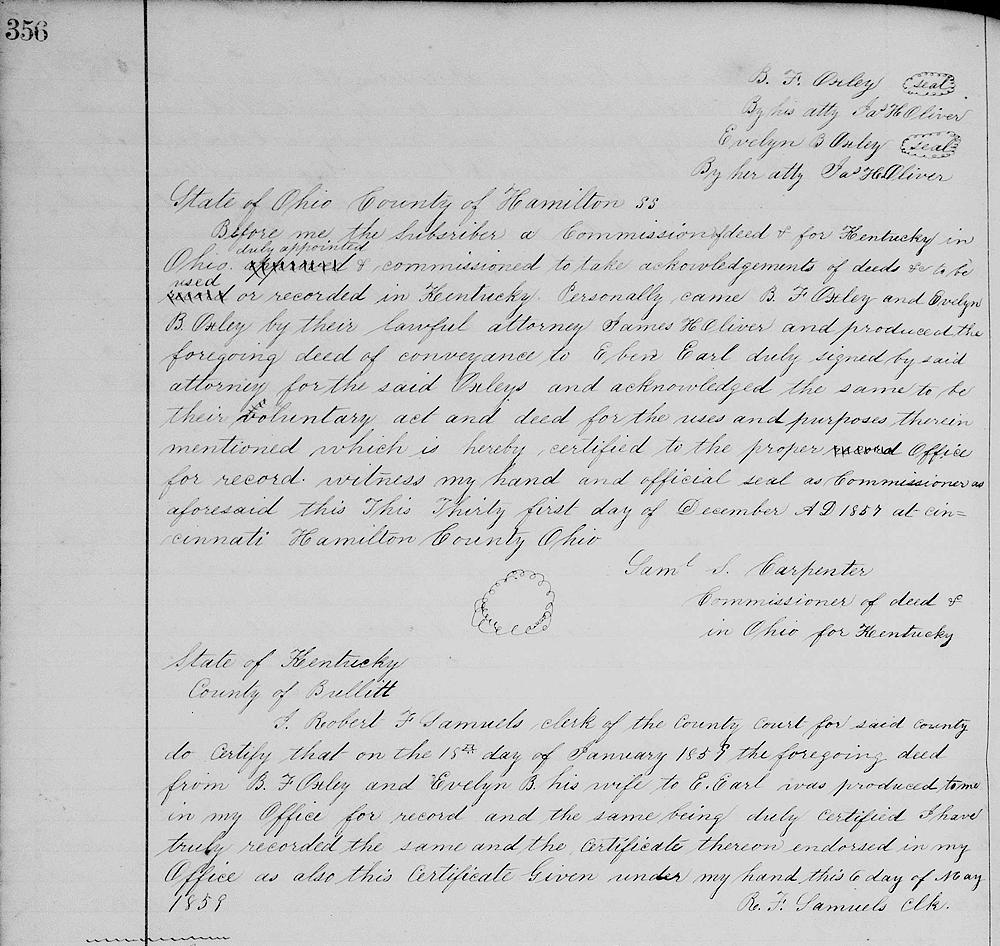 356
B. F. Oxley seal
By his atty Jas H Oliver
Evelyn B Oxley seal
By her atty Jas H Oliver
State of Ohio County of Hamilton ss
Before me the Subsriber a Commission of deed & for Kentucky in
duly appointed
Ohio. & commissioned to take acknowledgements of deeds &c to be
used
or recorded in Kentucky. Personally came B. F Oxley and Evelyn
B. Oxley by their lawful attorney James H Oliver and produced the
foregoing deed of conveyance to Eben Earl duly signed by said
attorney for the said Oxleys and acknowledged the same to be
their voluntary act and deed for the uses and purposes therein
mentioned which is hereby certified to the proper record Office
for record. witness my hand and official seal as Commissioner as
aforesaid this This Thirty first day of December A D 1857 at cin=
cinnati Hamilton County Ohio
Saml S. Carpenter
Commissioner of deed &
in Ohio for Kentucky
State of Kentucky
County of Bullitt
I. Robert F Samuels clerk of the County Court for said county
do Certify that on the 18th day of January 1859 the foregoing deed
from B. F Oxley and Evelyn B. his wife to E. Earl was produced to me
in my Office for record and the same being duly certified I have
truly recorded the same and the Certificate thereon endorsed in my
Office as also this Certificate Given under my hand this 6 day of May
1859 R. F. Samuels Clk.